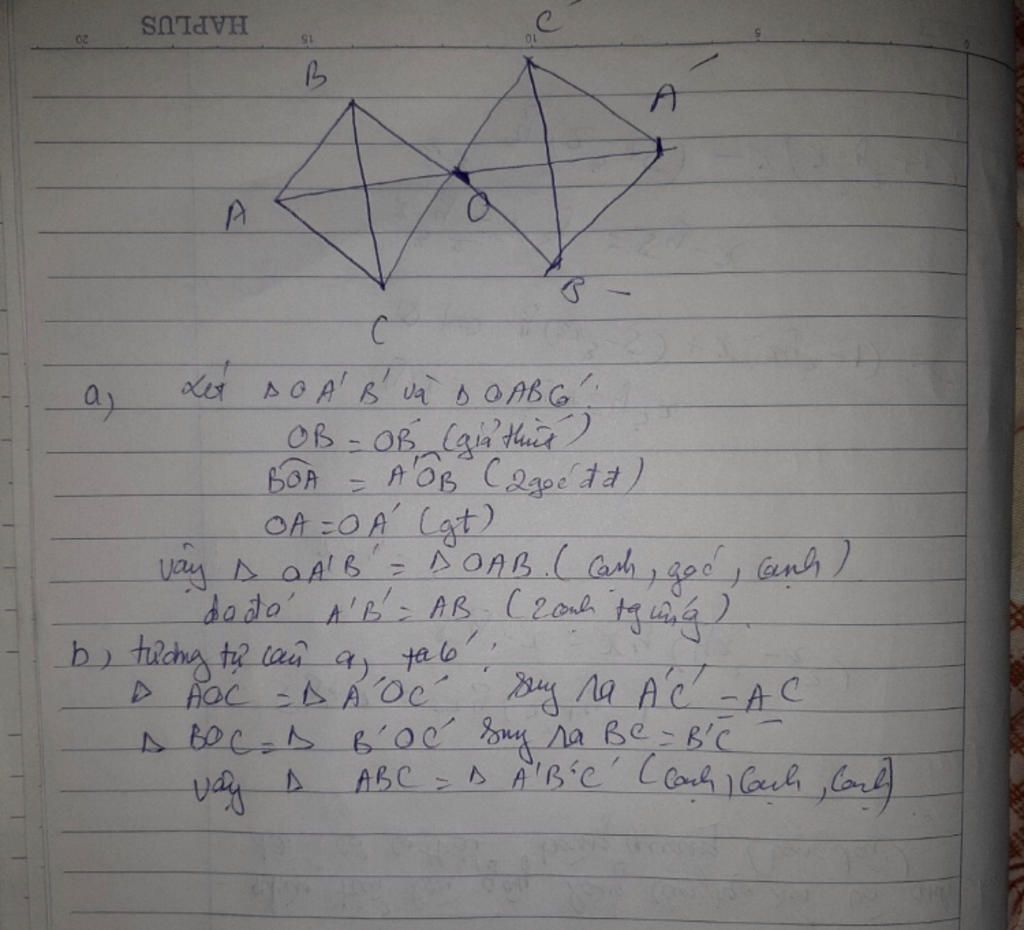 HAPLUS
20 15 10 5 0
C'
B A'
A O
B'
C
a) Xét Δ OA'B' và Δ OAB có:
OB = OB' (giả thiết)
BOA = A'OB (2 góc đđ)
OA = OA' (gt)
vậy Δ OA'B' = Δ OAB. (cạnh, góc, cạnh)
do đó A'B' = AB (2 cạnh tg ứng).
b) tương tự câu a, ta có:
Δ AOC = Δ A'OC' suy ra A'C' = AC
Δ BOC = Δ B'OC' suy ra BC = B'C'
vậy Δ ABC = Δ A'B'C' (cạnh, cạnh, cạnh)